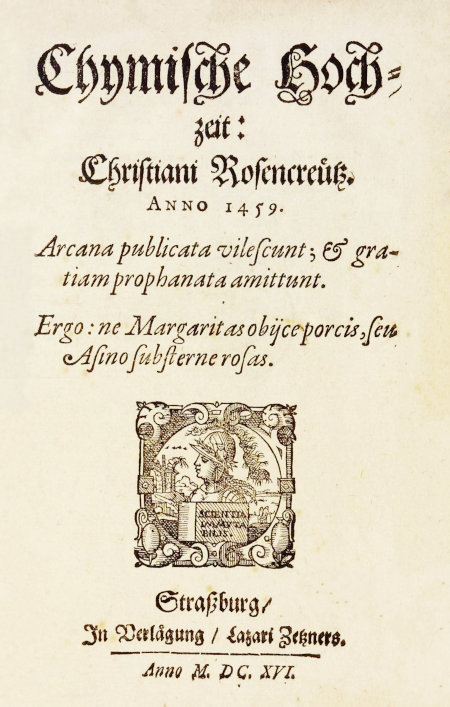 Chymiſche Hoch-
zeit:
Chriſtiani Roſencreütz.
ANNO 1459.
Arcana publicata vileſcunt; & gra-
tiam prophanata amittunt.
Ergo: ne Margaritas obijce porcis, ſeu
Aſino ſubſterne roſas.
SCIENTIA
IMMVTA
BILIS.
Straßburg/
In Verlägung / Lazari Zetzners.
Anno M. DC. XVI.